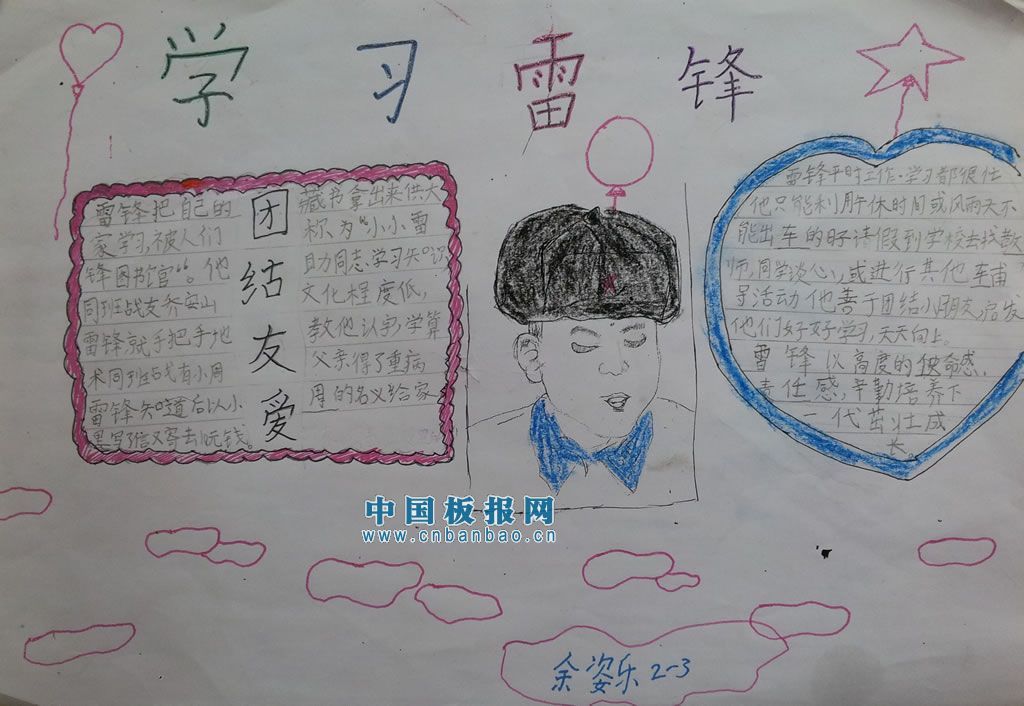 学习雷锋
雷锋把自己的
家学习,被人们
锋图书馆”。他
同班战友乔安山
雷锋就手把手地
术同班战友小周
雷锋知道后以小
里写了信又寄去10元钱。
团结友爱
藏书拿出来供大
称为“小小雷
助同志学习知识
文化程度低,
教他认字,学算
父亲得了重病
周的名义给家
雷锋平时工作·学习都很忙
他只能利用午休时间或风雨天不
能出车的时请假到学校去找教
师,同学谈心,或进行其他辅
导活动他善于团结小朋友,启发
他们好好学习,天天向上。
雷锋以高度的使命感,
责任感,辛勤培养下
一代茁壮成
长。
中国板报网
www.cnbanbao.cn
余姿乐2-3